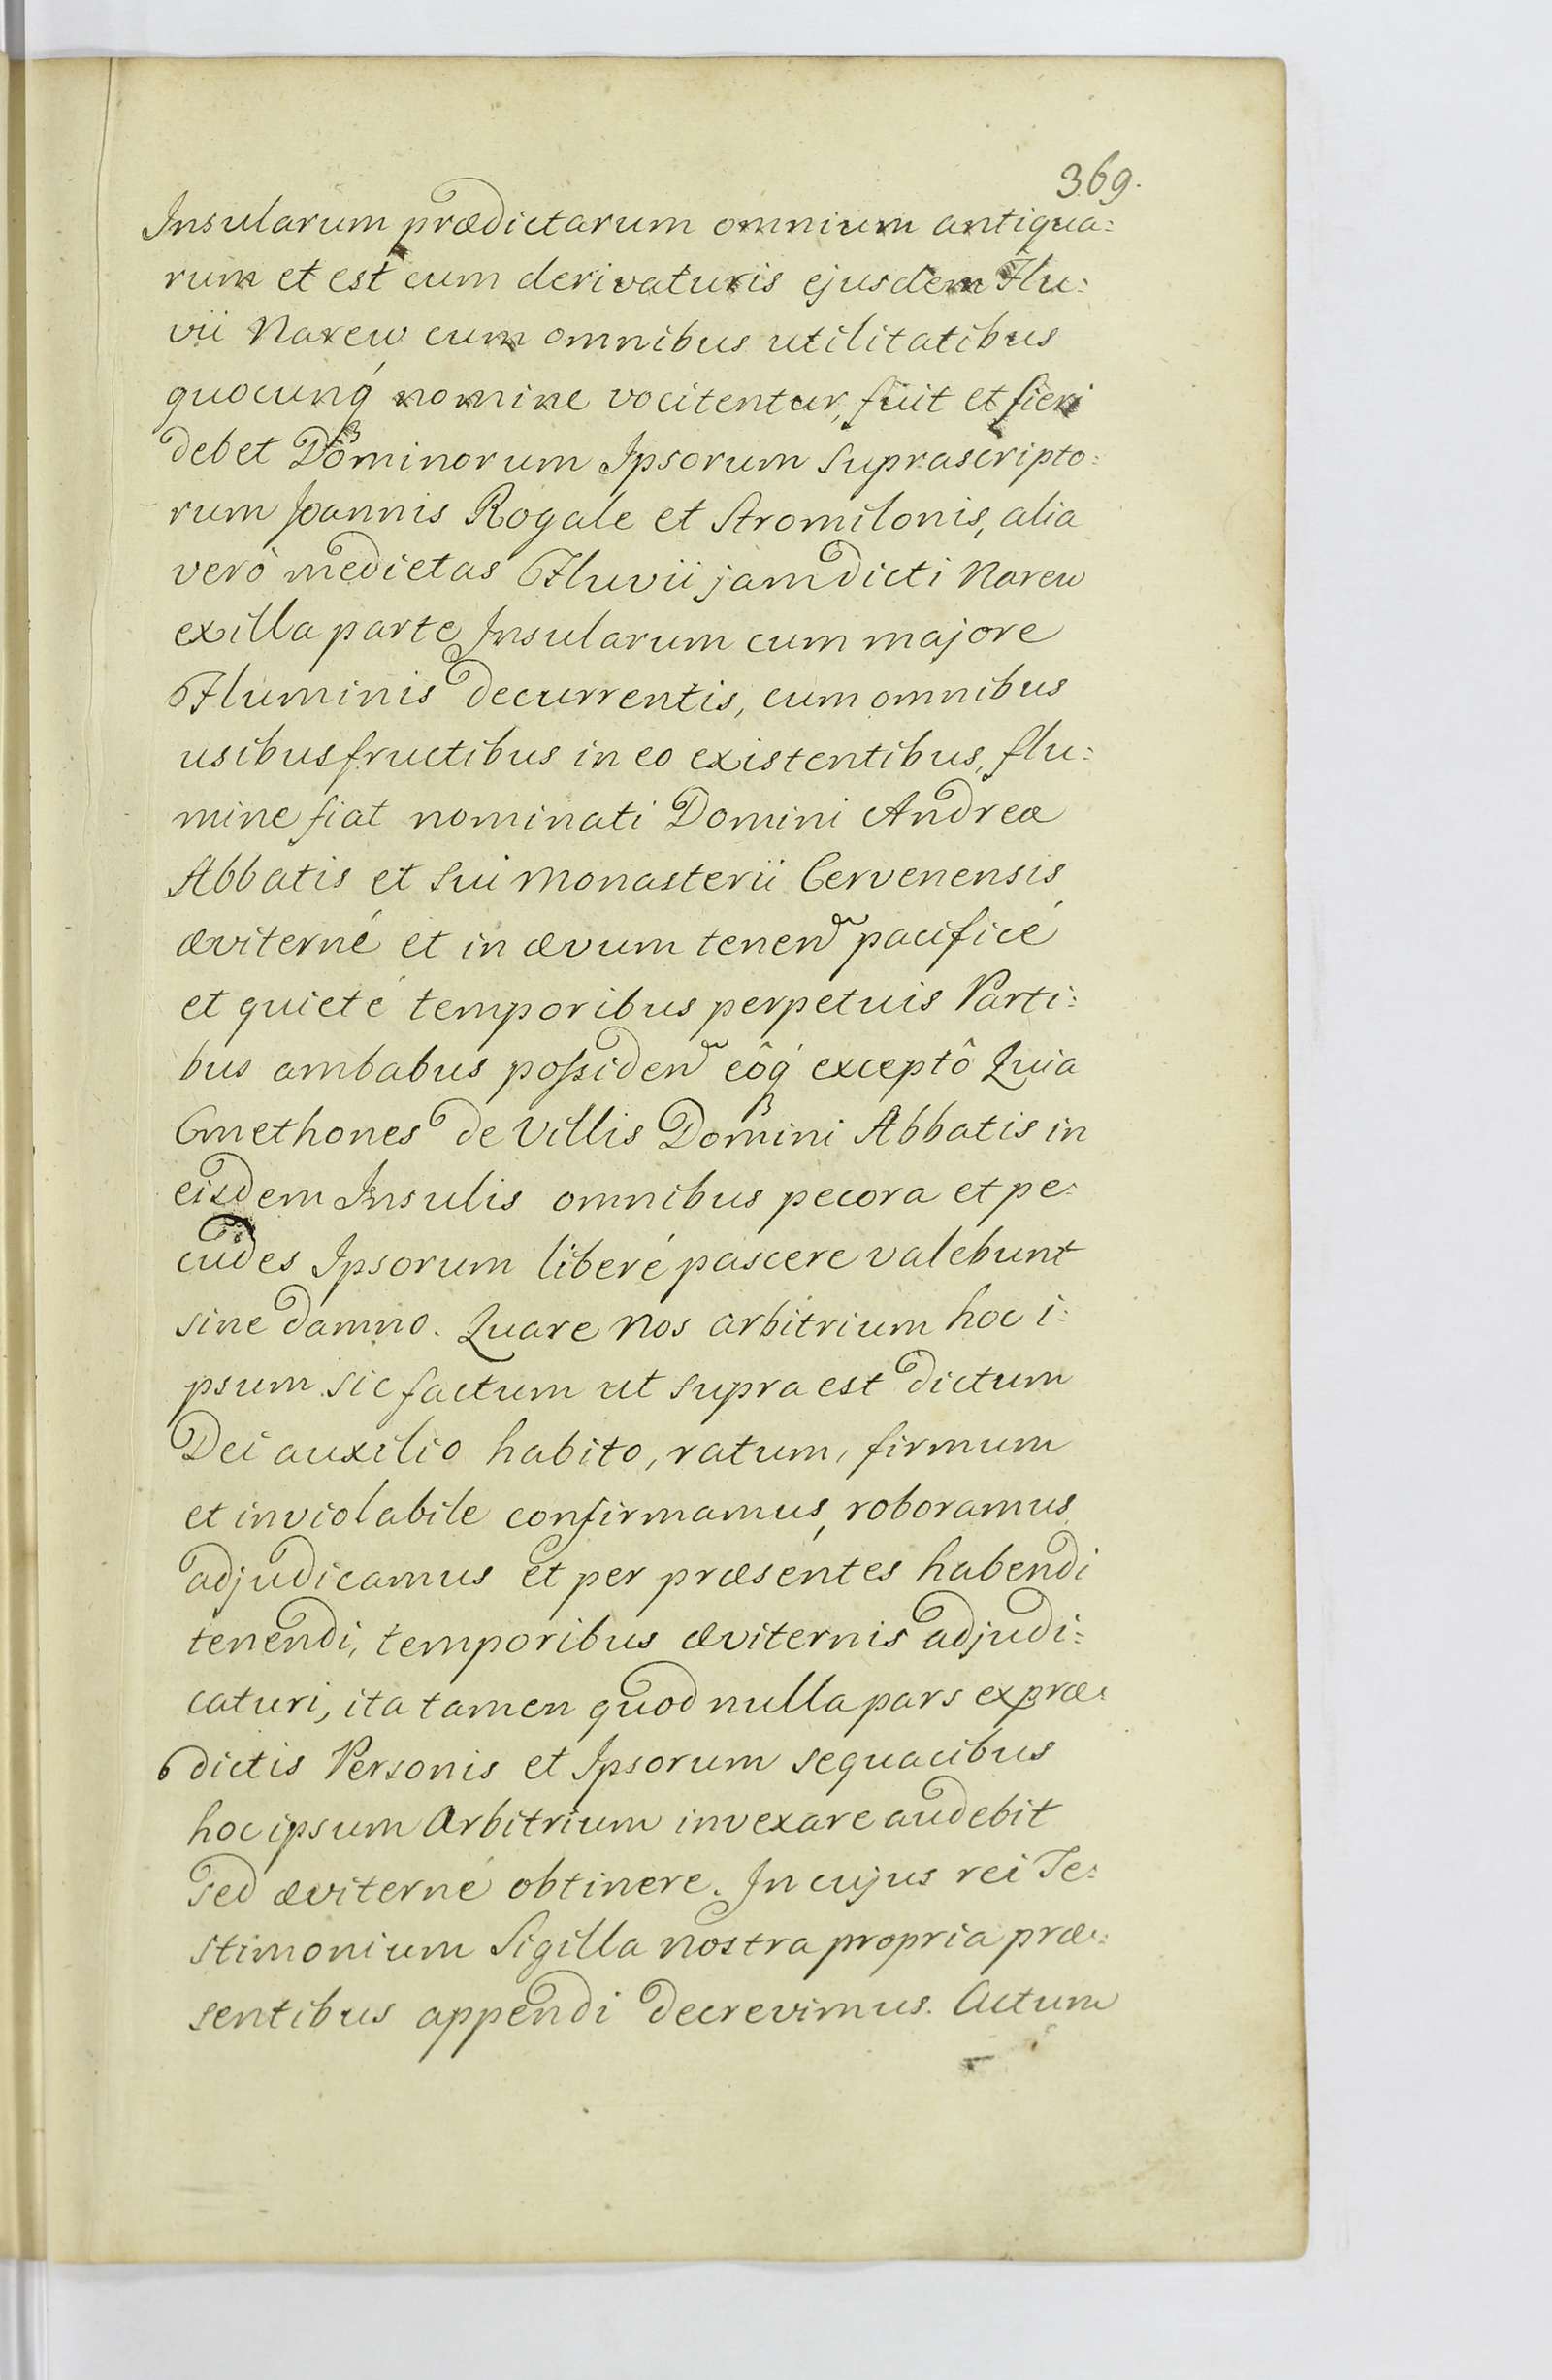 369.
Insularum prædictarum omnium antiqua:
rum et est cum derivaturis ejusdem Flu:
vii Narew cum omnibus utilitatibus
quocunq́ nomine vocitentur, fuit et fieri
debet Dominorum Ipsorum suprascripto:
rum Joannis Rogale et Stromilonis, alia
verò medietas Fluvii jamdicti Narew
exilla parte Insularum cum majore
Fluminis decurrentis, cum omnibus
usibusfructibus in eo existentibus, flu:
mine fiat nominati Domini Andreæ
Abbatis et sui Monasterii Cervenensis
æviterné et in ævum tenen͠d pacificé
et quieté temporibus perpetuis Parti:
bus ambabus possiden͠d eôq́ exceptô Quia
Cmethones de Villis Domini Abbatis in
eisdem Insulis omnibus pecora et pe:
cudes Ipsorum liberé pascere valebunt
sine damno. Quare Nos arbitrium hoc i:
psum sic factum ut supra est dictum
Dei auxilio habito, ratum, firmum
et inviolabile confirmamus, roboramus
adjudicamus et per præsentes habendi
tenendi, temporibus æviternis adjudi:
caturi, ita tamen quod nulla pars expræ:
dictis Personis et Ipsorum sequacibus
hoc ipsum Arbitrium invexare audebit
sed æviterné obtinere. In cujus rei Te:
stimonium Sigilla nostra propria præ:
sentibus appendi decrevimus. Actum